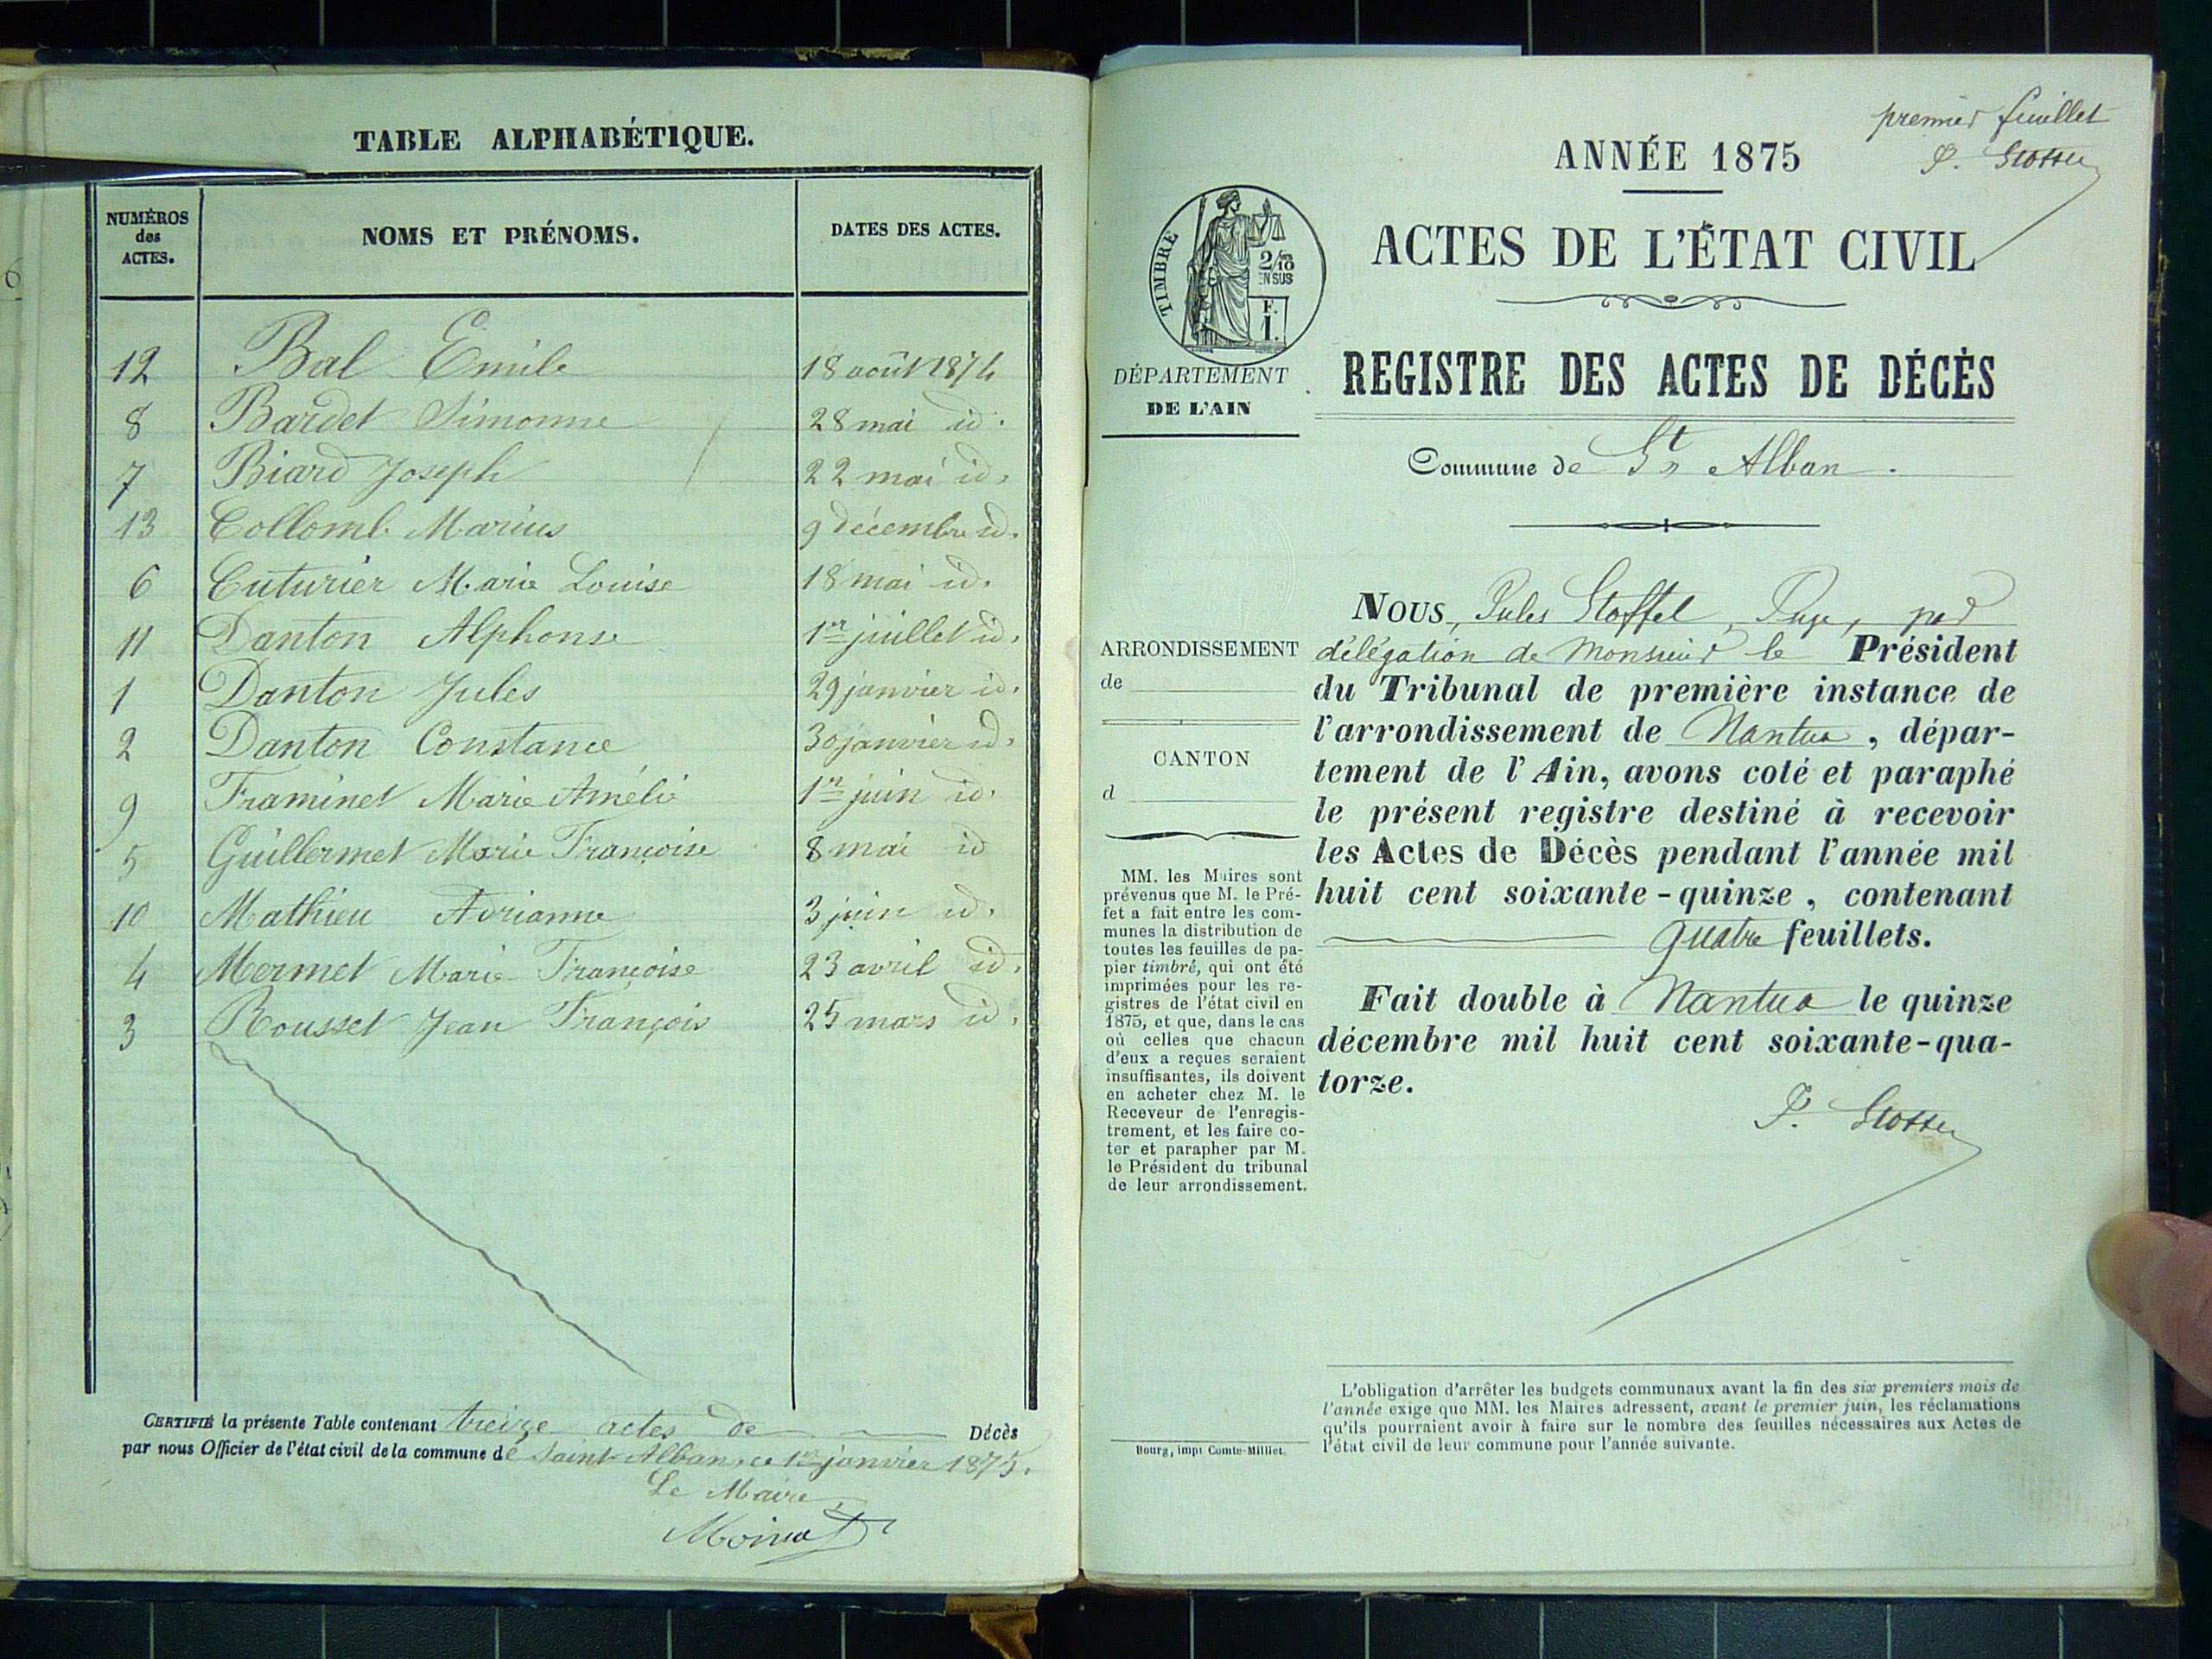 TABLE ALPHABÉTIQUE.
NUMÉROS des ACTES. NOMS ET PRÉNOMS. DATES DES ACTES.
12 Bal Emile 18 août 1874
8 Bardet Simonne 28 mai id.
7 Biard Joseph 22 mai id.
13 Collomb Marius 9 décembre id.
6 Cuturier Marie Louise 18 mai id.
11 Danton Alphonse 1er juillet id.
1 Danton Jules 29 janvier id.
2 Danton Constance 30 janvier id.
9 Framinet Marie Amélie 1er juin id.
5 Guillermet Marie Françoise 8 mai id
10 Mathieu Adrianne 3 juin id.
4 Mermet Marie Françoise 23 avril id.
3 Rousset Jean François 25 mars id.
CERTIFIÉ la présente Table contenant treize actes de Décès
par nous Officier de l'état civil de la commune de Saint-Alban, ce 1er janvier 1875.
Le Maire,
Moinat
premier feuillet
ANNÉE 1875
TIMBRE
2/10
EN SUS
F.
1.
ACTES DE L'ÉTAT CIVIL
DÉPARTEMENT
DE L'AIN
REGISTRE DES ACTES DE DÉCÈS
Commune de St Alban.
ARRONDISSEMENT
de
CANTON
d
MM. les Maires sont
prévenus que M. le Pré-
fet a fait entre les com-
munes la distribution de
toutes les feuilles de pa-
pier timbré, qui ont été
imprimées pour les re-
gistres de l'état civil en
1875, et que, dans le cas
où celles que chacun
d'eux a reçues seraient
insuffisantes, ils doivent
en acheter chez M. le
Receveur de l'enregis-
trement, et les faire co-
ter et parapher par M.
le Président du tribunal
de leur arrondissement.
Bourg, impr Comte-Milliet.
NOUS, Jules Stoffel, Juge, par
délégation de Monsieur le Président
du Tribunal de première instance de
l'arrondissement de Nantua, dépar-
tement de l'Ain, avons coté et paraphé
le présent registre destiné à recevoir
les Actes de Décès pendant l'année mil
huit cent soixante-quinze, contenant
quatre feuillets.
Fait double à Nantua le quinze
décembre mil huit cent soixante-qua-
torze.
L'obligation d'arrêter les budgets communaux avant la fin des six premiers mois de
l'année exige que MM. les Maires adressent, avant le premier juin, les réclamations
qu'ils pourraient avoir à faire sur le nombre des feuilles nécessaires aux Actes de
l'état civil de leur commune pour l'année suivante.